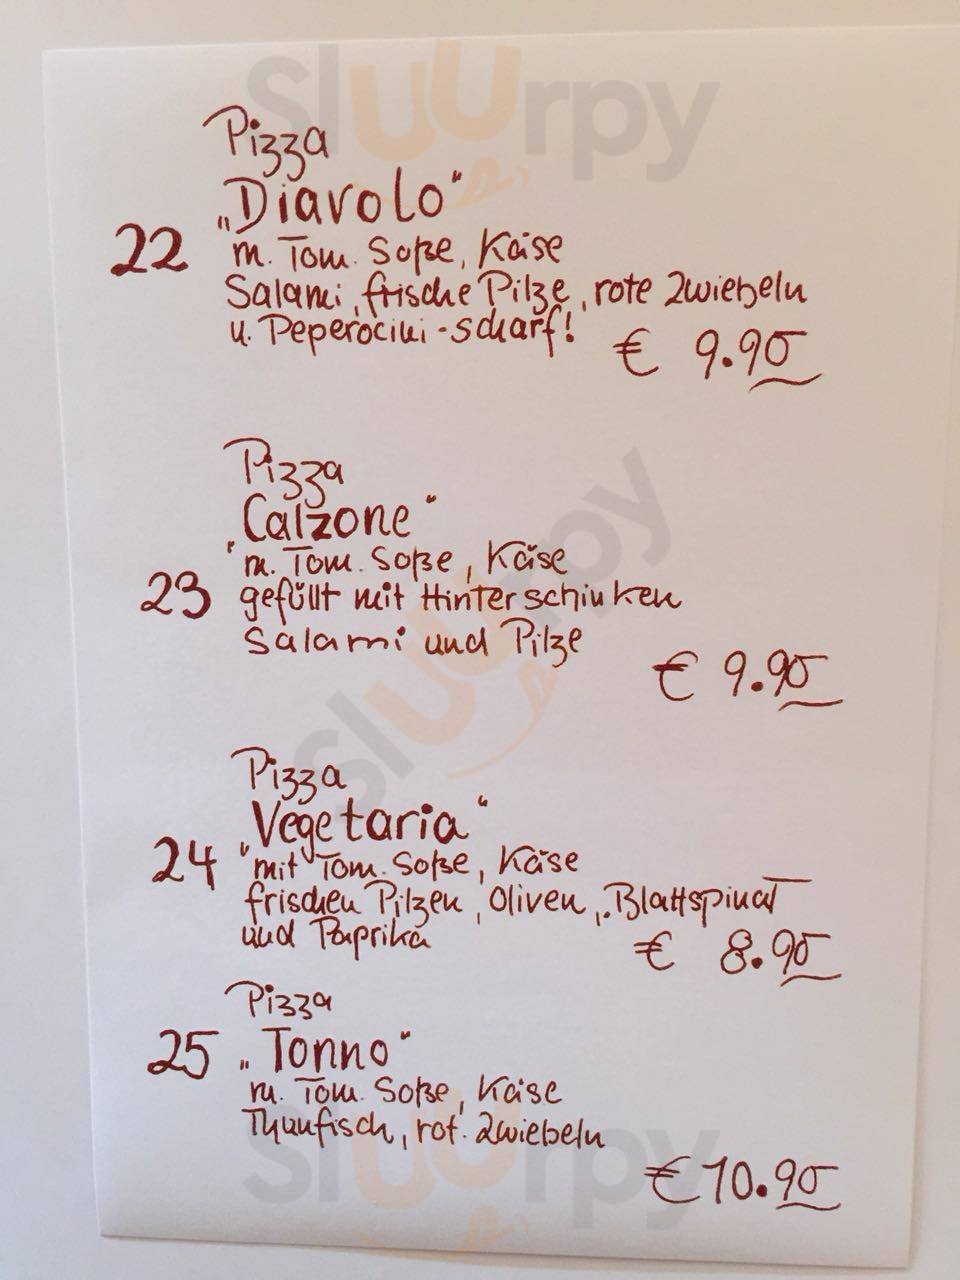 Pizza
„Diavolo"
22
m. Tom. Soße, Käse
Salami, frische Pilze, rote Zwiebeln
u. Peperocini - scharf!
€ 9.90
Pizza
„Calzone"
m. Tom. Soße, Käse
23 gefüllt mit Hinterschinken
Salami und Pilze
€ 9.90
Pizza
„Vegetaria"
24 mit Tom. Soße, Käse
frischen Pilzen, Oliven, Blattspinat
und Paprika
€ 8.90
Pizza
25 „Tonno"
m. Tom. Soße, Käse
Thunfisch, rot. Zwiebeln
€ 10.90
Sluurpy
Sluurpy
Sluurpy